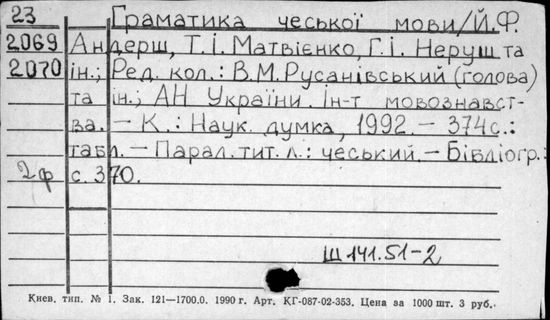 23 Граматика чеської мови/Й.Ф.
2069 Андерш, Т.І. Матвієнко, Г.І. Неруш та
2070 ін.; Ред. кол.: В.М. Русанівський (голова)
та ін.; АН України. Ін-т мовознавст-
ва. – К.: Наук. думка, 1992. – 374 с.:
табл. – Парал. тит. л.: чеський. – Бібліогр.:
2ф с. 370.
Ш141.51-2
Киев. тип. № 1. Зак. 121—1700.0. 1990 г. Арт. КГ-087-02-353. Цена за 1000 шт. 3 руб.